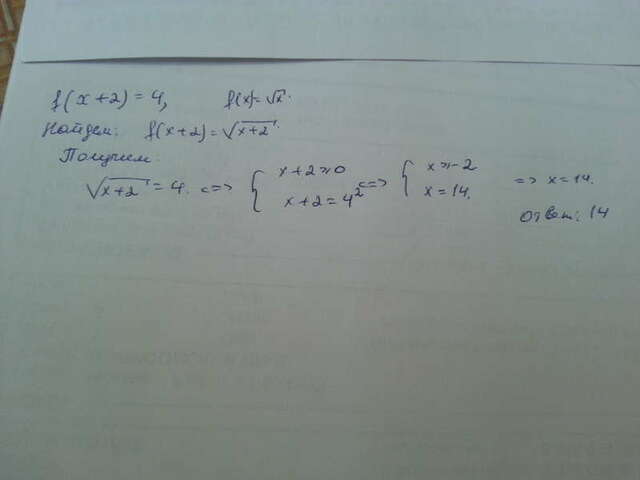 f(x+2)=4, f(x)=√x.
Найдем: f(x+2)=√x+2
Получим:
√x+2=4. <=> { x+2≥0 <=> { x≥-2 => x=14.
x+2=4² x=14.
Ответ: 14